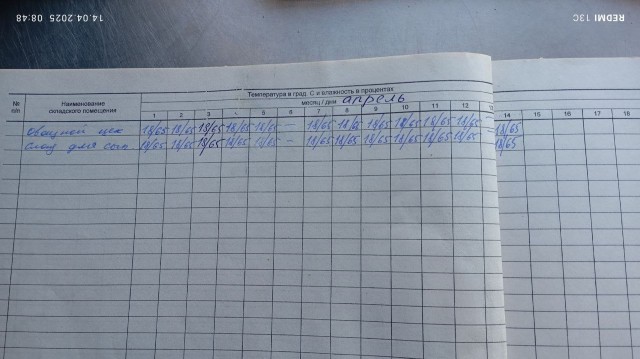 14.04.2025 08:48
REDMI 13C
Температура в град. С и влажность в процентах
№ п/п
Наименование складского помещения
месяц / дни апрель
1 2 3 4 5 6 7 8 9 10 11 12 13 14 15 16 17 18
Овощной цех 18/65 18/65 18/65 18/65 18/65 — 18/65 18/65 18/65 18/65 18/65 18/65 18/65
Склад для 18/65 18/65 18/65 18/65 18/65 — 18/65 18/65 18/65 18/65 18/65 18/65 18/65